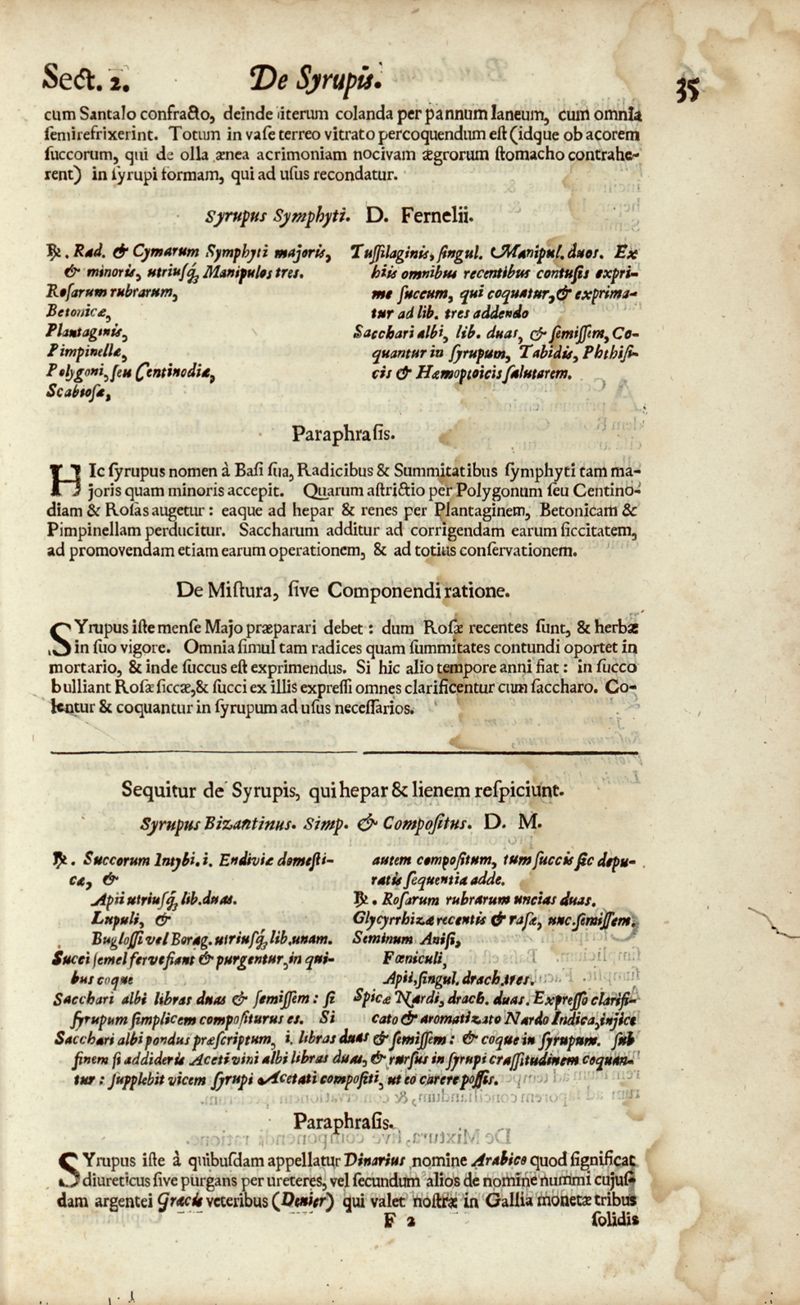 Sect. 2. De Syrupis. 35
cum Santalo confracto, deinde iterum colanda per pannum laneum, cum omnia
ſemirefrixerint. Totum in vaſe terreo vitrato percoquendum eſt (idque ob acorem
ſuccorum, qui de olla ænea acrimoniam nocivam ægrorum ſtomacho contrahe-
rent) in ſyrupi formam, qui ad uſus recondatur.
Syrupus Symphyti. D. Fernelii.
℞. Rad. & Cymarum Symphyti majoris,
& minoris, utriuſq; Manipulos tres.
Roſarum rubrarum,
Betonicæ,
Plantaginis,
Pimpinellæ,
Polygoni, ſeu Centinodiæ,
Scabioſæ,
Tuſſilaginis, ſingul. Manipul. duos. Ex
hiis omnibus recentibus contuſis expri-
me ſuccum, qui coquatur, & exprima-
tur ad lib. tres addendo
Sacchari albi, lib. duas, & ſemiſſem, Co-
quantur in ſyrupum, Tabidis, Phthiſi-
cis & Hæmoptoicis ſalutarem.
Paraphraſis.
HIc ſyrupus nomen à Baſi ſua, Radicibus & Summitatibus ſymphyti tam ma-
joris quam minoris accepit. Quarum aſtrictio per Polygonum ſeu Centino-
diam & Roſas augetur: eaque ad hepar & renes per Plantaginem, Betonicam &
Pimpinellam perducitur. Saccharum additur ad corrigendam earum ſiccitatem,
ad promovendam etiam earum operationem, & ad totius conſervationem.
De Miſtura, ſive Componendi ratione.
SYrupus iſte menſe Majo præparari debet: dum Roſæ recentes ſunt, & herbæ
in ſuo vigore. Omnia ſimul tam radices quam ſummitates contundi oportet in
mortario, & inde ſuccus eſt exprimendus. Si hic alio tempore anni fiat: in ſucco
bulliant Roſæ ſiccæ, & ſucci ex illis expreſſi omnes clarificentur cum ſaccharo. Co-
lentur & coquantur in ſyrupum ad uſus neceſſarios.
Sequitur de Syrupis, qui hepar & lienem reſpiciunt.
Syrupus Bizantinus. Simp. & Compoſitus. D. M.
℞. Succorum Intybi. i. Endiviæ domeſti-
cæ, &
Apii utriuſq; lib. duas.
Lupuli, &
Bugloſſi vel Borag. utriuſq; lib. unam.
Succi ſemel fervefiant & purgentur, in qui-
bus coque
Sacchari albi libras duas & ſemiſſem: ſi
ſyrupum ſimplicem compoſiturus es. Si
autem compoſitum, tum ſuccis ſic depu-
ratis ſequentia adde.
℞. Roſarum rubrarum uncias duas.
Glycyrrhizæ recentis & raſæ, unc. ſemiſſem.
Seminum Aniſi,
Fœniculi,
Apii, ſingul. drach. tres.
Spicæ Nardi, drach. duas. Expreſſo clarifi-
cato & aromatizato Nardo Indica, injice
Sacchari albi pondus præſcriptum, i. libras duas & ſemiſſem: & coque in ſyrupum. ſub
finem ſi addideris Aceti vini albi libras duas, & rurſus in ſyrupi craſſitudinem coquan-
tur: ſupplebit vicem ſyrupi Acetati compoſiti, ut eo carere poſſis.
Paraphraſis.
SYrupus iſte à quibuſdam appellatur Dinarius nomine Arabico quod ſignificat
diureticus ſive purgans per ureteres, vel ſecundum alios de nomine nummi cujuſ-
dam argentei Græcis veteribus (Denier) qui valet noſtræ in Gallia monetæ tribus
F 2 ſolidis